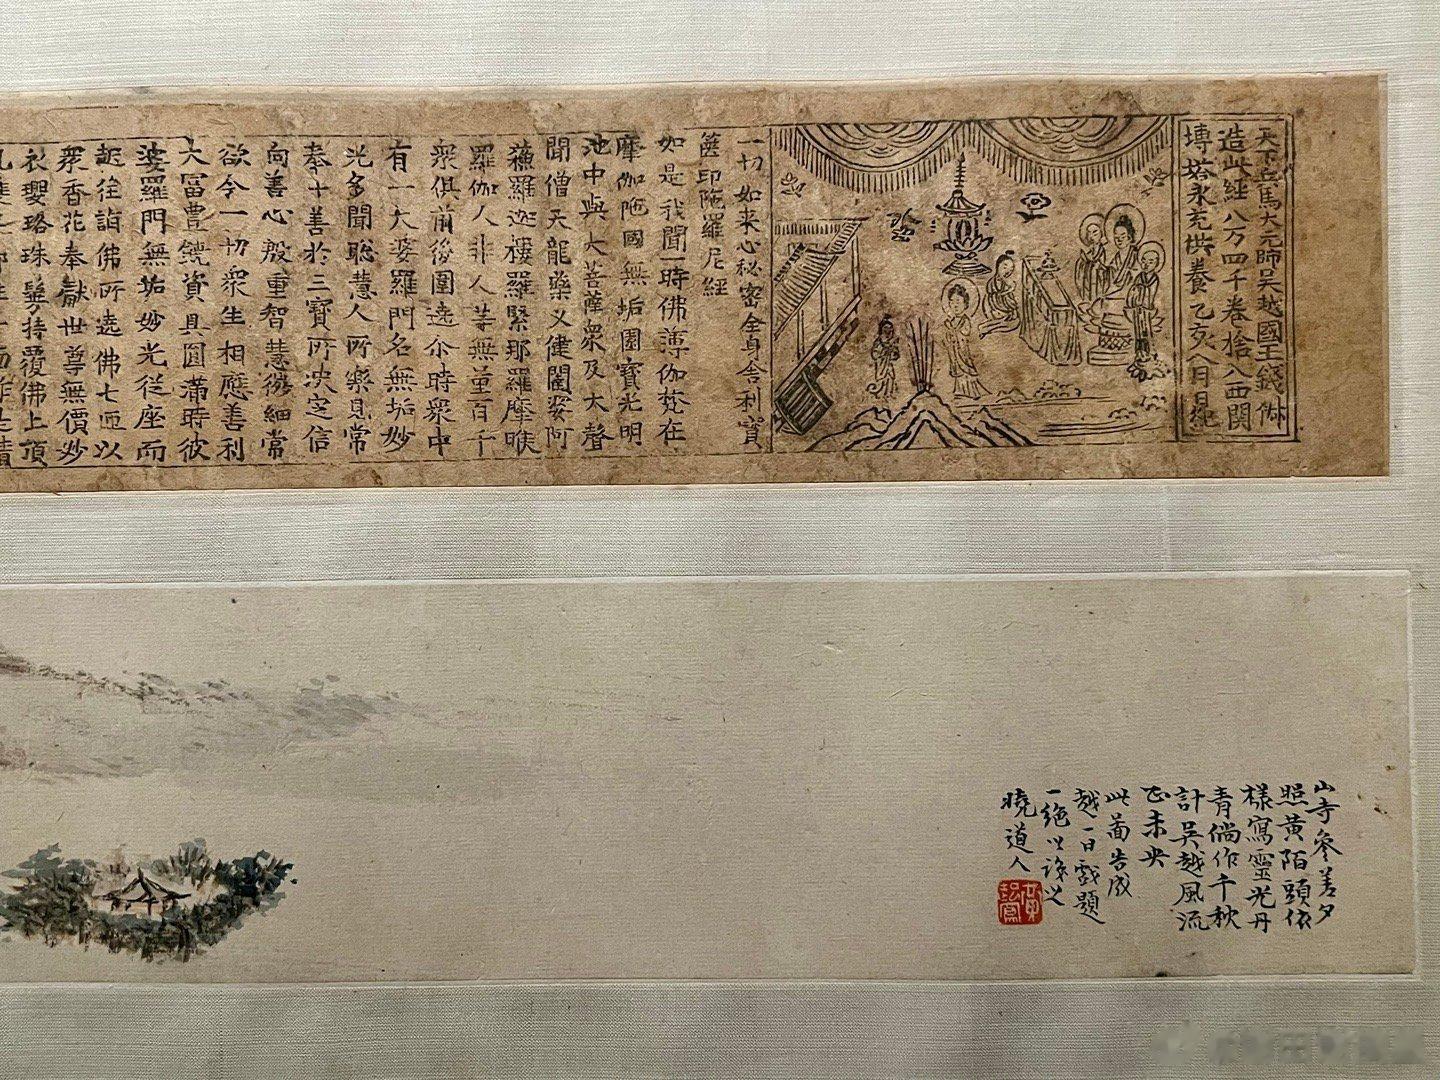 天下兵馬大元帥吳越國王錢俶
造此經八万四千卷捨入西關
塼塔永充供養乙亥八月日紀
一切如来心秘密全身舍利寶
篋印陁羅尼經
如是我聞一時佛薄伽梵在
摩伽陁國無垢園寶光明
池中與大菩薩衆及大聲
聞僧天龍藥叉健闥婆阿
蘓羅迦樓羅緊那羅摩睺
羅伽人非人等無量百千
衆俱前後圍遶尒時衆中
有一大婆羅門名無垢妙
光多聞聡慧人所樂見常
奉十善於三寶所决定信
向善心殷重智慧微細常
欲令一切衆生相應善利
大富豊饒資具圓滿時彼
婆羅門無垢妙光從座而
起往詣佛所遶佛七匝以
衆香花奉獻世尊無價妙
衣瓔珞珠鬘持覆佛上頂
山寺參差夕
照黄陌頭依
樣寫靈光丹
青倘作千秋
計吴越風流
正未央
此畵告成
越一日戲題
一絶以誌之
曉道人